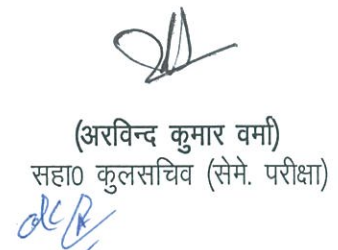 (अरविन्द कुमार वर्मा)
सहा0 कुलसचिव (सेमे. परीक्षा)